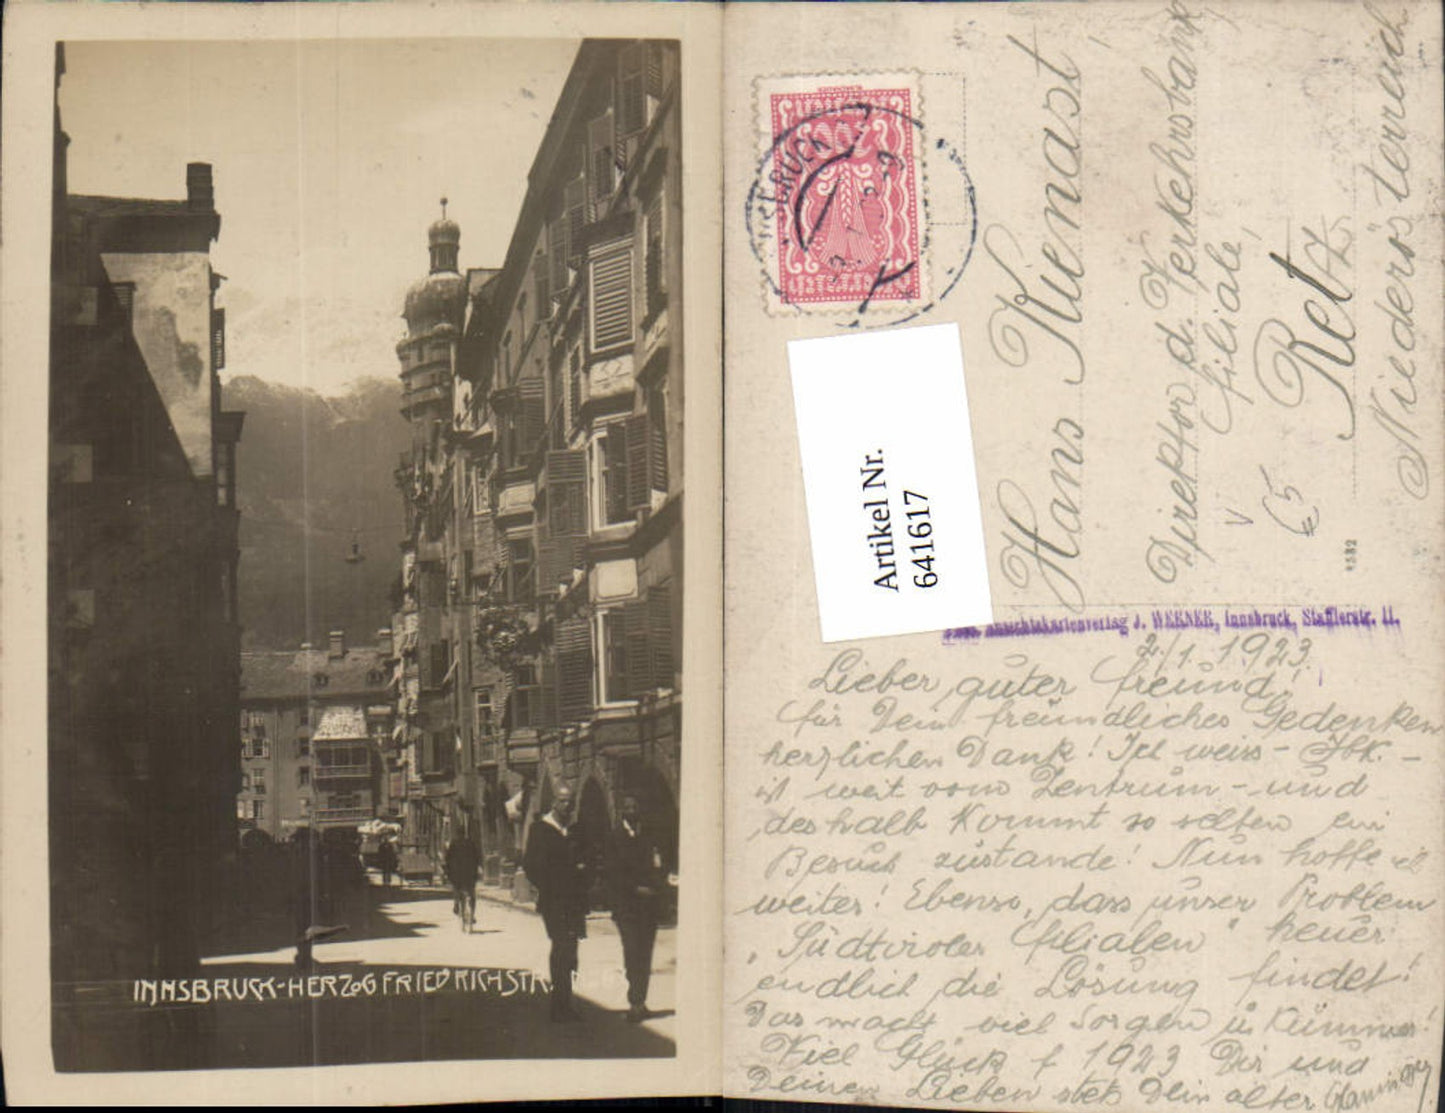 INNSBRUCK-HERZOG FRIEDRICHSTR.
200
Artikel Nr.
641617
Hans Kienast
Direktor d. Verkehrsbank
Filiale
Retz
Niederösterreich
65
Ansichtskartenverlag J. WERNER, Innsbruck, Stafflerstr. 11.
2/1. 1923.
Lieber guter Freund!
für Dein freundliches Gedenken
herzlichen Dank! Ich weiss - Ibk. -
ist weit vom Zentrum - und
deshalb kommt so selten ein
Besuch zustande! Nun hoffe ich
weiter! Ebenso, dass unser Problem
"Südtiroler Filialen" heuer
endlich die Lösung findet!
Das macht viel Sorgen u. Kummer!
Viel Glück f 1923 Dir und
Deinen Lieben stets Dein alter